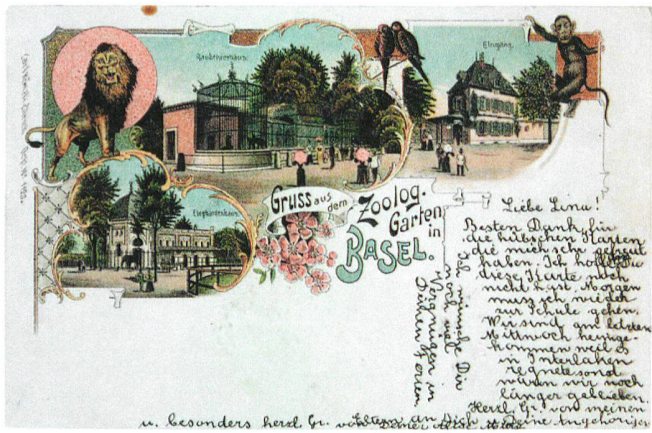 Raubtierhaus
Eingang
Elephantenhaus
Gruss aus dem
Zoolog.
Garten
in
BASEL.
Liebe Lina!
Besten Dank für
die hübschen Karten
die mich sehr gefreut
haben. Ich hoffe Du
diese Karte noch
nicht hast. Morgen
muss ich wieder
zur Schule gehen.
Wir sind am letzten
Mittwoch heimge-
kommen weil es
in Interlaken
regnete sonst
wären wir noch
länger geblieben.
Herzl. Gr. von meinen
Eltern an Dich u. Deine Angehörigen
u. besonders herzl. Gr. von Deiner
Ich wünsche Dir
noch viel
Vergnügen in
Deinen Ferien